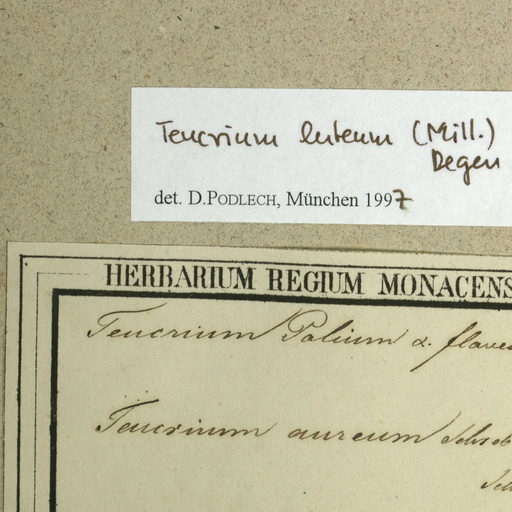 Teucrium luteum (Mill.)
Degen
det. D.PODLECH, München 1997
HERBARIUM REGIUM MONACENS
Teucrium Polium α. flave
Teucrium aureum Schreb